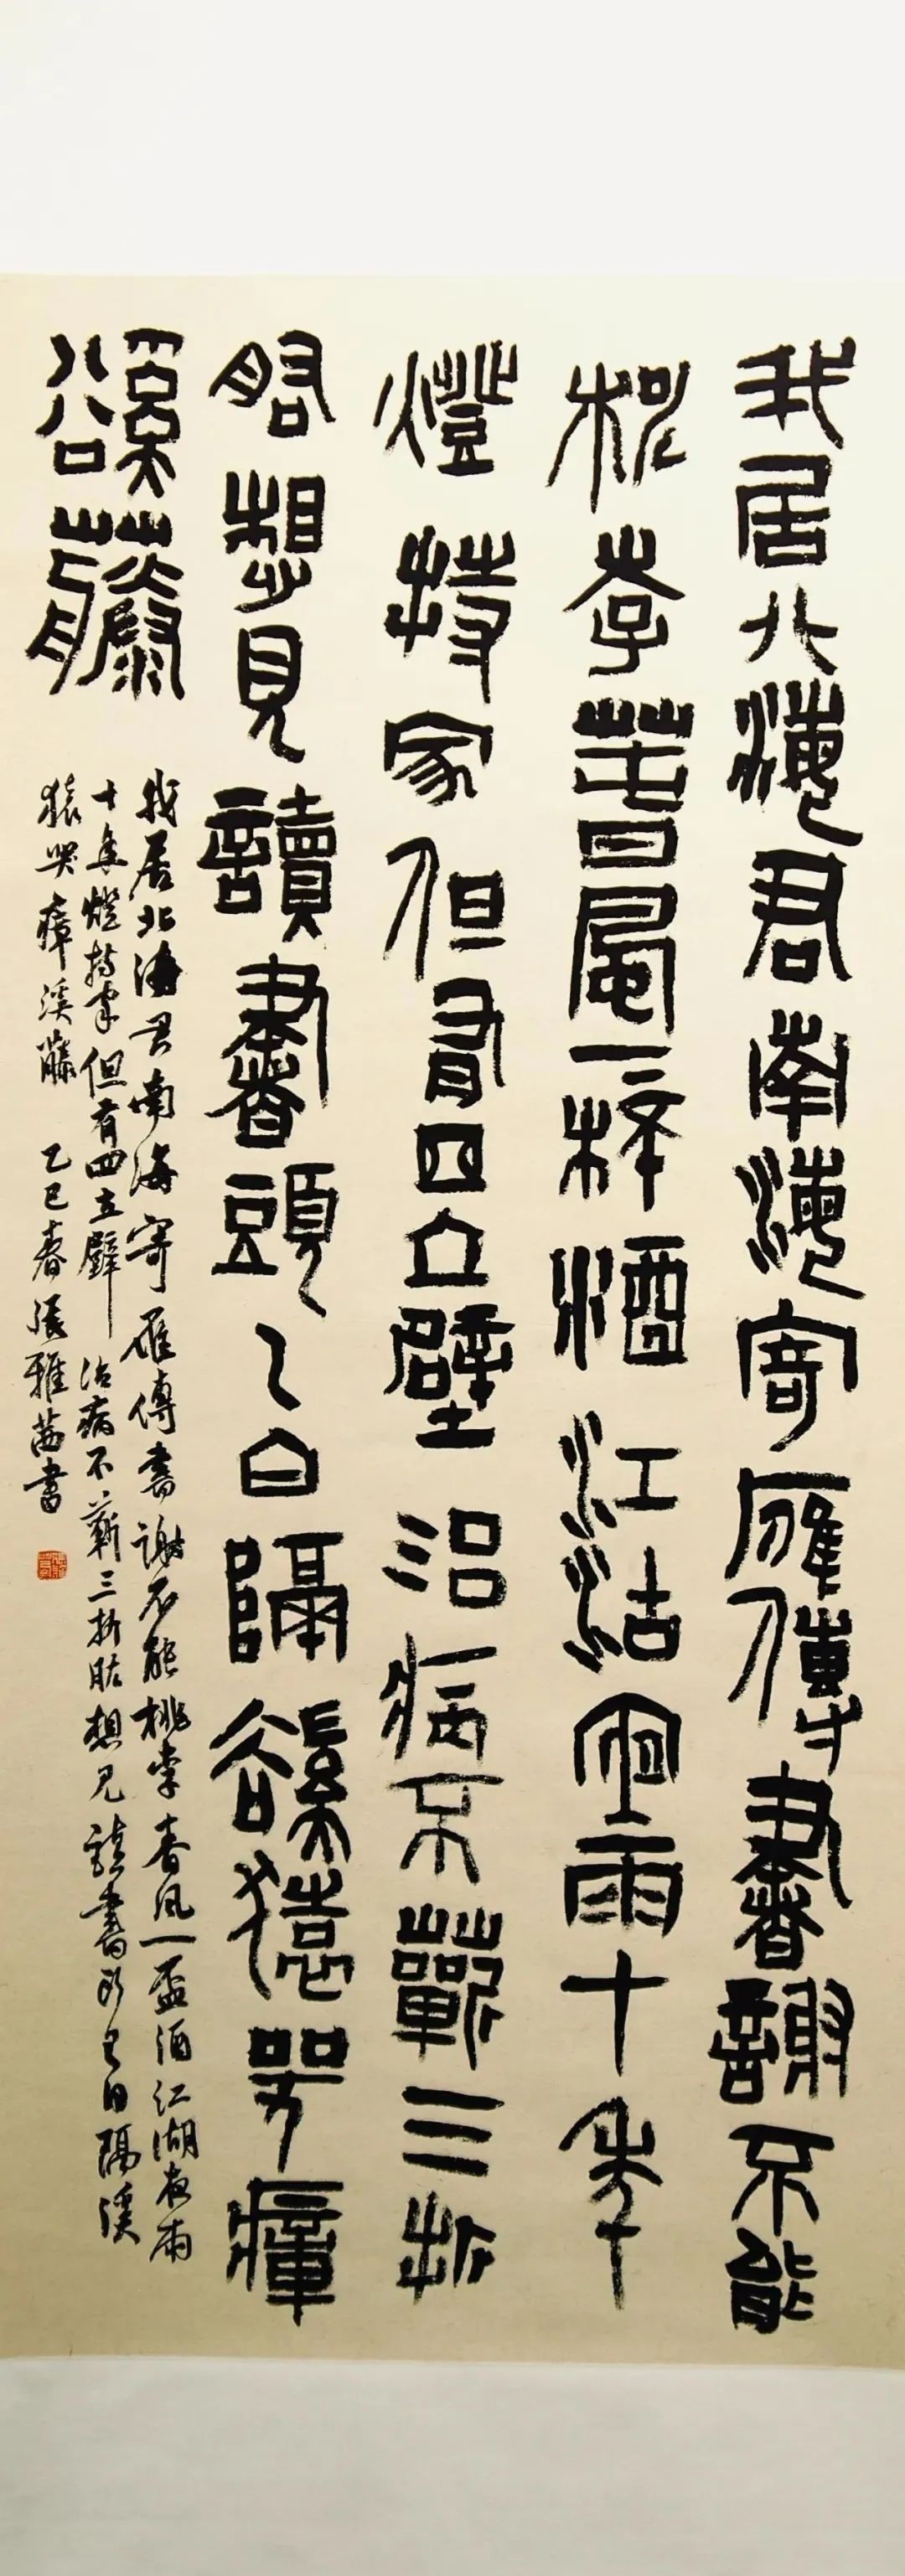 我居北海君南海寄雁傳書謝不能
桃李春風一杯酒江湖夜雨十年
燈持家但有四立壁治病不蘄三折
肱想見讀書頭已白隔谿猿哭瘴
谿藤
我居北海君南海寄雁傳書謝不能桃李春风一盃酒江湖夜雨
十年燈持家但有四立壁治病不蘄三折肱想見讀書頭已白隔溪
猿哭瘴溪藤 乙巳春張雅茜書